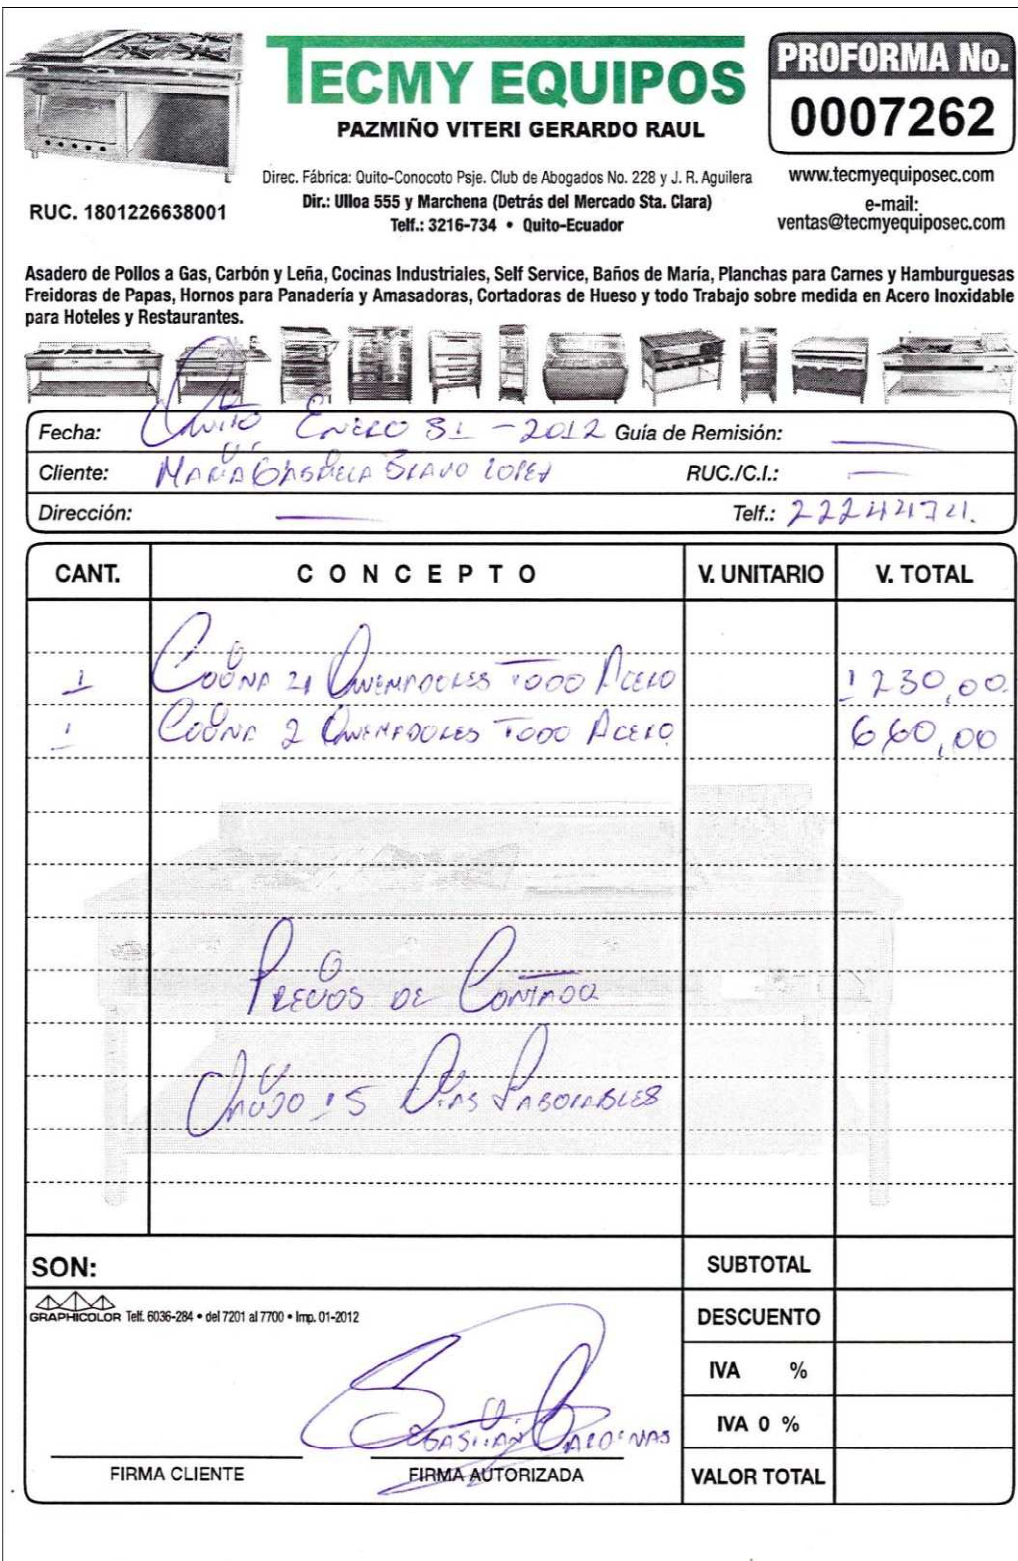 TECMY EQUIPOS
PAZMIÑO VITERI GERARDO RAUL
PROFORMA No.
0007262
Direc. Fábrica: Quito-Conocoto Psje. Club de Abogados No. 228 y J. R. Aguilera
Dir.: Ulloa 555 y Marchena (Detrás del Mercado Sta. Clara)
Telf.: 3216-734 • Quito-Ecuador
RUC. 1801226638001
www.tecmyequiposec.com
e-mail:
ventas@tecmyequiposec.com
Asadero de Pollos a Gas, Carbón y Leña, Cocinas Industriales, Self Service, Baños de María, Planchas para Carnes y Hamburguesas
Freidoras de Papas, Hornos para Panadería y Amasadoras, Cortadoras de Hueso y todo Trabajo sobre medida en Acero Inoxidable
para Hoteles y Restaurantes.
Fecha: Quito Enero 31 - 2012 Guía de Remisión:
Cliente: María Gabriela Bravo Lopez RUC./C.I.:
Dirección: Telf.: 2224474.
CANT. CONCEPTO V. UNITARIO V. TOTAL
1 Cocina 4 Quemadores Todo Acero 1230,00
1 Cocina 2 Quemadores Todo Acero 660,00
Precios de Contado
15 Días Laborables
SON:
SUBTOTAL
GRAPHICOLOR Telf. 6036-284 • del 7201 al 7700 • Imp. 01-2012
DESCUENTO
IVA %
IVA 0 %
Sebastián Cardenas
FIRMA CLIENTE FIRMA AUTORIZADA VALOR TOTAL